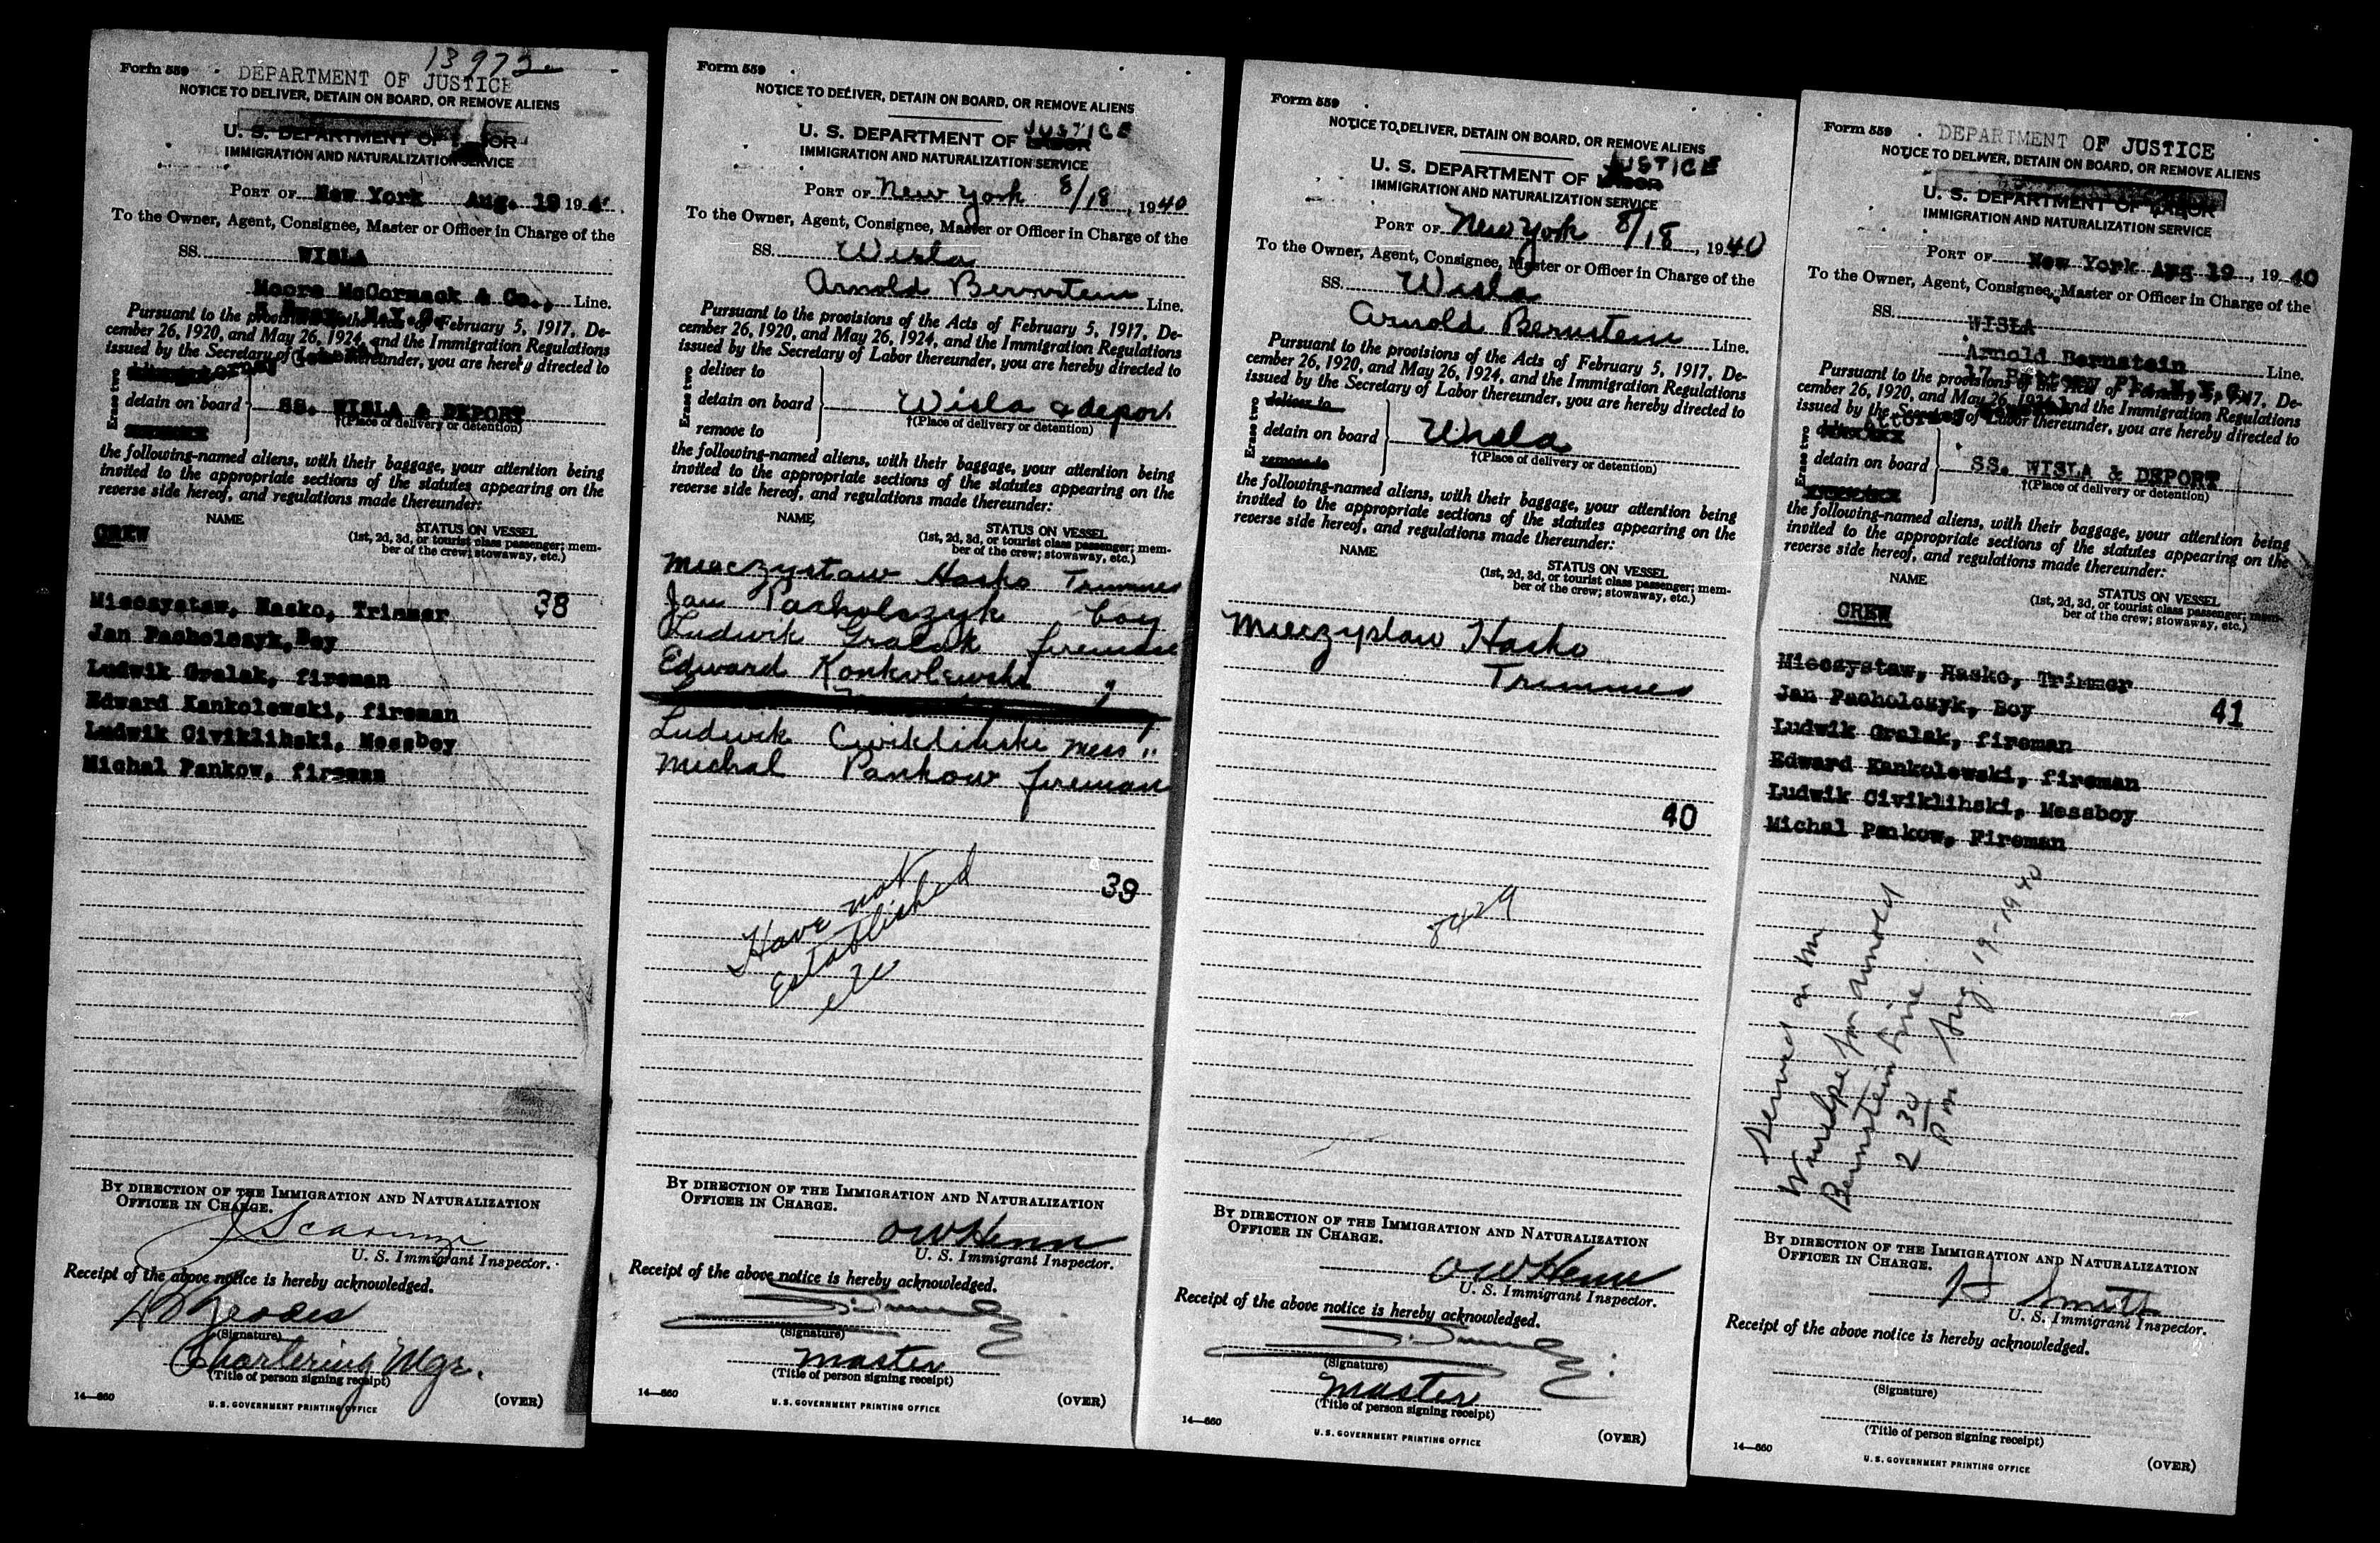 13972
Form 559 DEPARTMENT OF JUSTICE
NOTICE TO DELIVER, DETAIN ON BOARD, OR REMOVE ALIENS
U. S. DEPARTMENT OF LABOR
IMMIGRATION AND NATURALIZATION SERVICE
PORT OF New York Aug. 19 194
To the Owner, Agent, Consignee, Master or Officer in Charge of the
SS. WISLA
Moore McCormack & Co., Line.
Pursuant to the provisions of the Acts of February 5, 1917, De-
cember 26, 1920, and May 26, 1924, and the Immigration Regulations
issued by the Secretary of thereunder, you are hereby directed to
Erase two
detain on board SS. WISLA & DEPORT
†(Place of delivery or detention)
the following-named aliens, with their baggage, your attention being
invited to the appropriate sections of the statutes appearing on the
reverse side hereof, and regulations made thereunder:
NAME STATUS ON VESSEL
CREW (1st, 2d, 3d, or tourist class passenger; mem-
ber of the crew; stowaway, etc.)
Miecsystaw, Hasko, Trimmer 38
Jan Pacholczyk, Boy
Ludwik Gralak, fireman
Edward Kankolewski, fireman
Ludwik Civiklihski, Messboy
Michal Pankow, fireman
BY DIRECTION OF THE IMMIGRATION AND NATURALIZATION
OFFICER IN CHARGE.
U. S. Immigrant Inspector.
Receipt of the above notice is hereby acknowledged.
(Signature)
Chartering Mgr.
(Title of person signing receipt)
14—560 (OVER)
U. S. GOVERNMENT PRINTING OFFICE
Form 559
NOTICE TO DELIVER, DETAIN ON BOARD, OR REMOVE ALIENS
U. S. DEPARTMENT OF LABOR JUSTICE
IMMIGRATION AND NATURALIZATION SERVICE
PORT OF New York 8/18, 1940
To the Owner, Agent, Consignee, Master or Officer in Charge of the
SS. Wisla
Arnold Bernstein Line.
Pursuant to the provisions of the Acts of February 5, 1917, De-
cember 26, 1920, and May 26, 1924, and the Immigration Regulations
issued by the Secretary of Labor thereunder, you are hereby directed to
Erase two
deliver to
detain on board Wisla & depor
†(Place of delivery or detention)
remove to
the following-named aliens, with their baggage, your attention being
invited to the appropriate sections of the statutes appearing on the
reverse side hereof, and regulations made thereunder:
NAME STATUS ON VESSEL
(1st, 2d, 3d, or tourist class passenger; mem-
ber of the crew; stowaway, etc.)
Mieczystaw Hasko Trimmer
Jan Pacholczyk boy
Ludwik Gralak fireman
Edward Konkolewski "
Ludwik Cwiklinski mess "
Michal Pankow fireman
39
Have not
Established
etc
BY DIRECTION OF THE IMMIGRATION AND NATURALIZATION
OFFICER IN CHARGE.
OW Henn
U. S. Immigrant Inspector.
Receipt of the above notice is hereby acknowledged.
(Signature)
Master
(Title of person signing receipt)
14—560 (OVER)
U. S. GOVERNMENT PRINTING OFFICE
Form 559
NOTICE TO DELIVER, DETAIN ON BOARD, OR REMOVE ALIENS
U. S. DEPARTMENT OF LABOR JUSTICE
IMMIGRATION AND NATURALIZATION SERVICE
PORT OF New York 8/18, 1940
To the Owner, Agent, Consignee, Master or Officer in Charge of the
SS. Wisla
Arnold Bernstein Line.
Pursuant to the provisions of the Acts of February 5, 1917, De-
cember 26, 1920, and May 26, 1924, and the Immigration Regulations
issued by the Secretary of Labor thereunder, you are hereby directed to
Erase two
deliver to
detain on board Wisla
†(Place of delivery or detention)
remove to
the following-named aliens, with their baggage, your attention being
invited to the appropriate sections of the statutes appearing on the
reverse side hereof, and regulations made thereunder:
NAME STATUS ON VESSEL
(1st, 2d, 3d, or tourist class passenger; mem-
ber of the crew; stowaway, etc.)
Mieczyslaw Hasko
Trimmer
40
8429
BY DIRECTION OF THE IMMIGRATION AND NATURALIZATION
OFFICER IN CHARGE.
OW Henn
U. S. Immigrant Inspector.
Receipt of the above notice is hereby acknowledged.
(Signature)
Master
(Title of person signing receipt)
14—560 (OVER)
U. S. GOVERNMENT PRINTING OFFICE
Form 559 DEPARTMENT OF JUSTICE
NOTICE TO DELIVER, DETAIN ON BOARD, OR REMOVE ALIENS
U. S. DEPARTMENT OF LABOR
IMMIGRATION AND NATURALIZATION SERVICE
PORT OF New York Aug 19, 1940
To the Owner, Agent, Consignee, Master or Officer in Charge of the
SS. WISLA
Arnold Bernstein Line.
17 Battery Pl., N.Y.C.
Pursuant to the provisions of the Acts of February 5, 1917, De-
cember 26, 1920, and May 26, 1924, and the Immigration Regulations
issued by the Secretary of Labor thereunder, you are hereby directed to
Erase two
detain on board SS. WISLA & DEPORT
†(Place of delivery or detention)
the following-named aliens, with their baggage, your attention being
invited to the appropriate sections of the statutes appearing on the
reverse side hereof, and regulations made thereunder:
NAME STATUS ON VESSEL
CREW (1st, 2d, 3d, or tourist class passenger; mem-
ber of the crew; stowaway, etc.)
Miecsystaw, Hasko, Trimmer
Jan Pacholczyk, Boy 41
Ludwik Gralak, fireman
Edward Kankolewski, fireman
Ludwik Civiklihski, Messboy
Michal Pankow, Fireman
Served on Mr
for Arnold
Bernstein Line
2 30 pm Aug. 19-1940
BY DIRECTION OF THE IMMIGRATION AND NATURALIZATION
OFFICER IN CHARGE.
H Smith
U. S. Immigrant Inspector.
Receipt of the above notice is hereby acknowledged.
(Signature)
(Title of person signing receipt)
14—560 (OVER)
U. S. GOVERNMENT PRINTING OFFICE